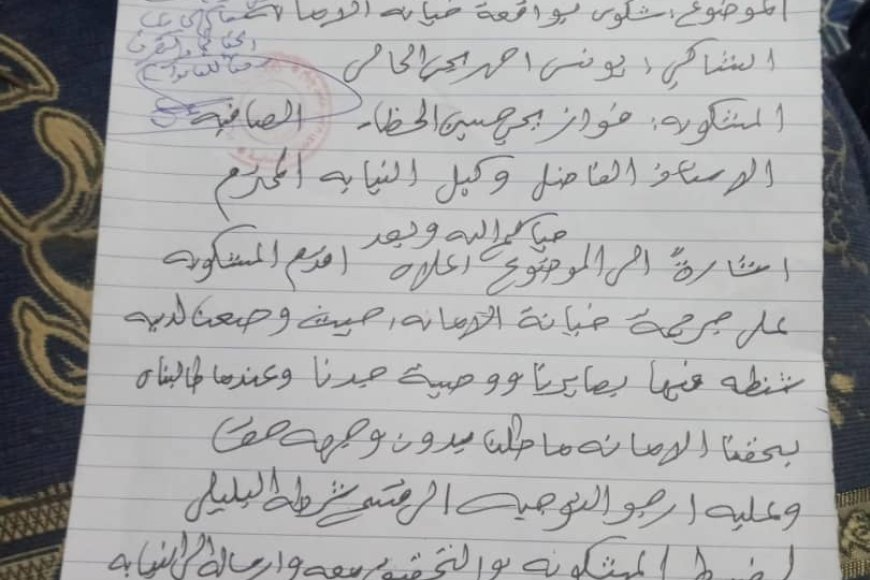 الموضوع: شكوى بواقعة خيانة الامانة
الشاكي: يونس احمد يحيى
المشكو به: فواز يحي حسين الصافية
الاستاذ الفاضل وكيل النيابه المحترم
حياكم الله وبعد
اشارةً الى الموضوع اعلاه اقدم المشكو به
على جريمة خيانة الامانه، حيث وضعنا لديه
شنطه فيها بصايرنا ووصية جدنا وعندما طالبناه
بحقنا الامانه ماطلنا بدون وجهه حق
وعليه ارجو التوجيه الى قسم شرطه البليلي
لضبط المشكو به والتحقيق معه وارساله الى النيابه